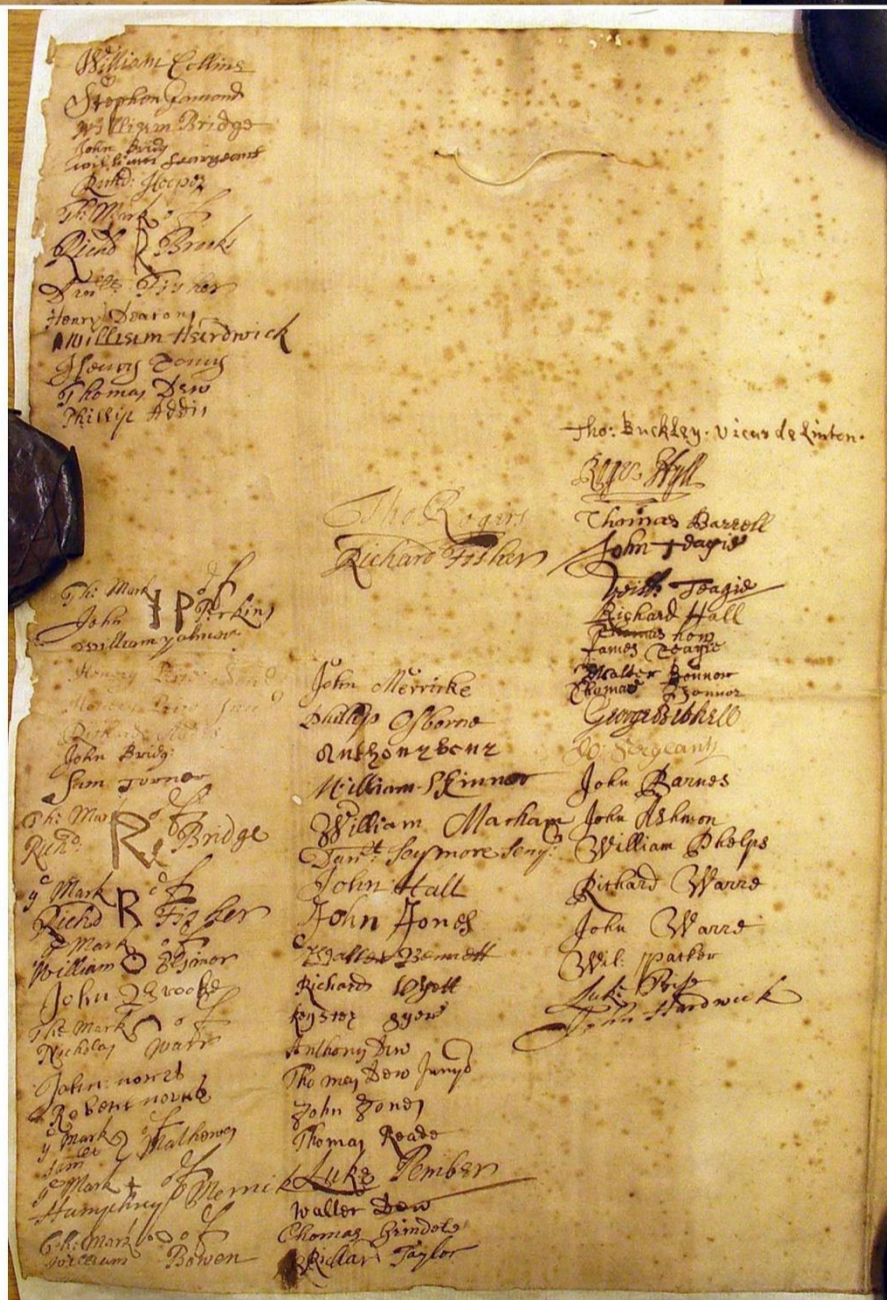 William Collins
Stephen
William Bridge
John Bridg
william Seargeant
Richd: Hooper
The Mark of
Richd R Brooks
Fisher
Henry Deacons
William Hardwick
Henry
Thomas Dew
Phillip Addis
The Mark of
John I P Perkins
William
Henry
John Bridg:
Sam Turnor
The Mark of
Richd: R Bridge
ye Mark of
Richd R Fisher
ye Mark of
William O
John Brooke
The Mark of
Nicholas Warr
John: norris
Robert norris
ye Mark of
Mathewes
ye Mark + of
Humphry Merrick
The Mark of
William Bowen
Tho Rogers
Richard Fisher
John Merricke
Phillip Osborne
Anthony
William Skinner
William Macham
Danl: Seymore Seny:
John Hall
John Jones
Walter Bennett
Richard Wyett
Anthony Dew
Thomas Dew Junyo
John Jones
Thomas Reade
Luke Pember
Walter Dew
Thomas Grindole
Richar Taylor
Tho: Buckley. Vicar de Linton.
Roger Hyll
Thomas Barrell
John Teague
Teagie
Richard Hall
Thomas how
James Teague
Walter Bonnor
Thomas Bonnor
George Bithell
W: Sergeant
John Barnes
John Ashmon
William Phelps
Richard Warre
John Warre
Wil: Parker
Luke
John Hardwick